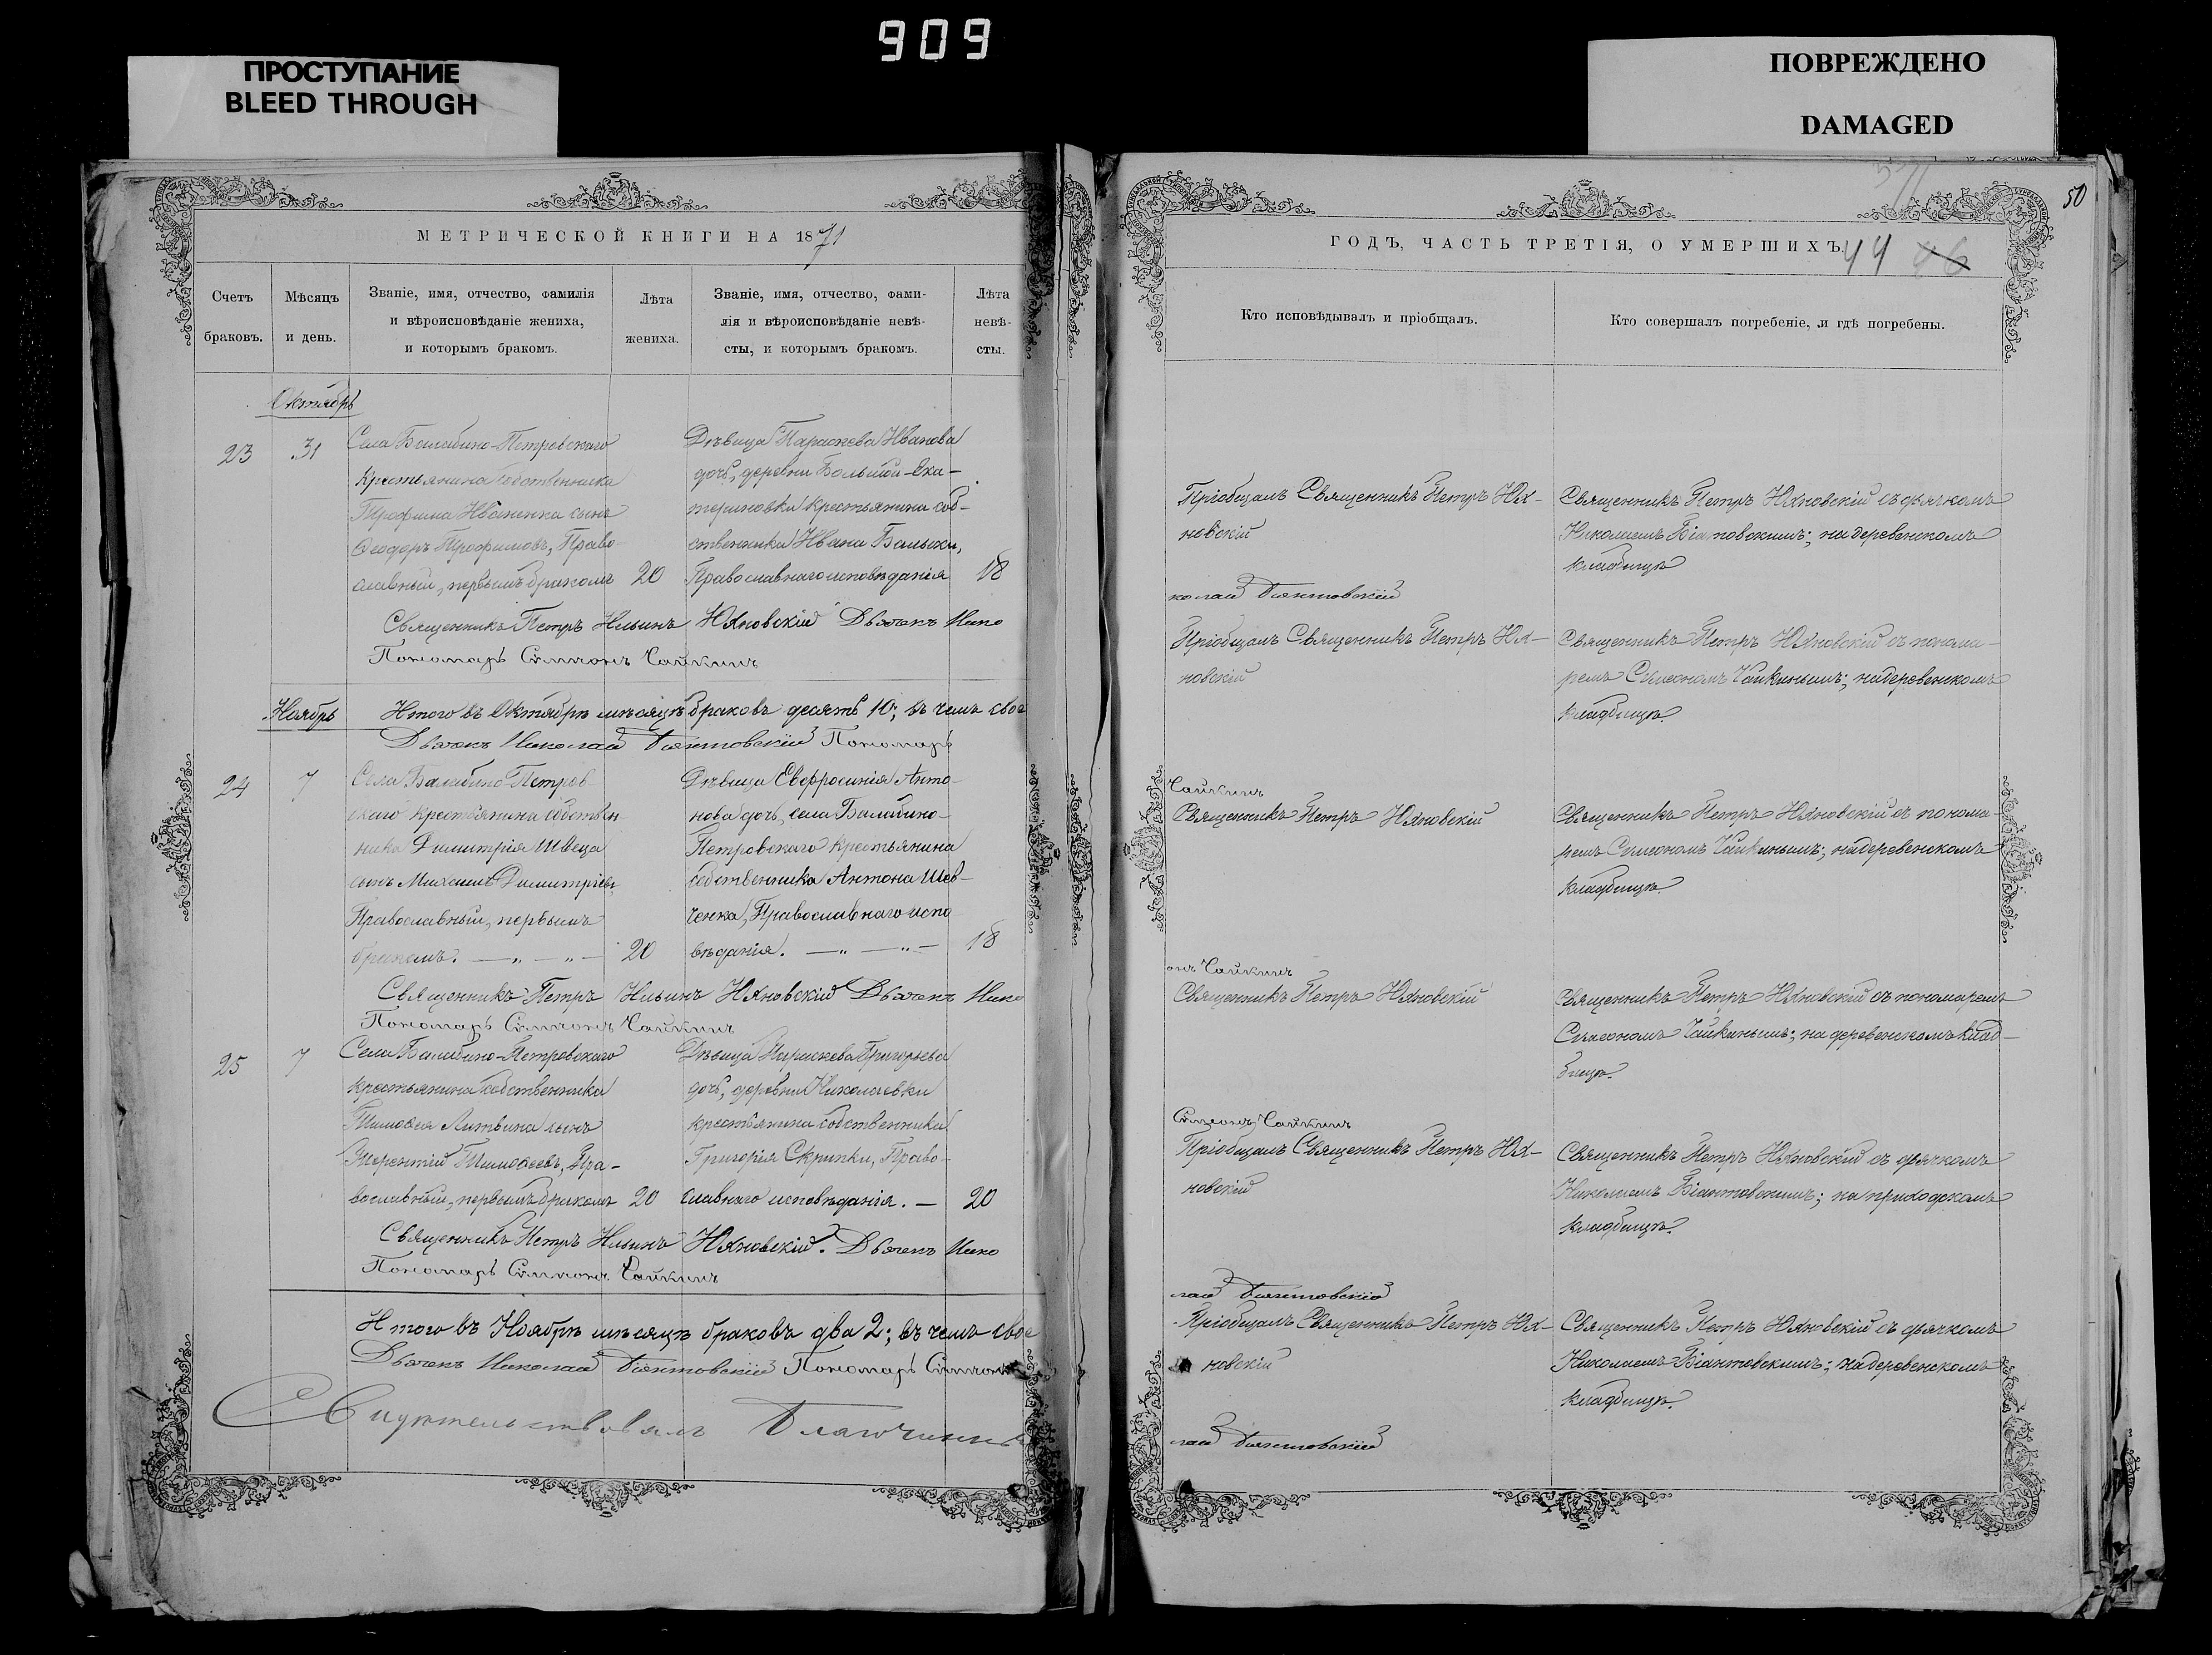 909
ПРОСТУПАНИЕ
BLEED THROUGH
ПОВРЕЖДЕНО
DAMAGED
МЕТРИЧЕСКОЙ КНИГИ НА 1871
Счетъ браковъ.
Мѣсяцъ и день.
Званіе, имя, отчество, фамилія
и вѣроисповѣданіе жениха,
и которымъ бракомъ.
Лѣта жениха.
Званіе, имя, отчество, фами-
лія и вѣроисповѣданіе невѣ-
сты, и которымъ бракомъ.
Лѣта невѣ-
сты.
Октябрь
23 31
Села Балабино-Петровскаго
крестьянина собственника
Трофима Иваненка сынъ
Ѳеодоръ Трофимовъ, Право-
славный, первымъ бракомъ 20
Дѣвица Параскева Иванова
дочь, деревни Большой-Ека-
териновки крестьянина соб-
ственника Ивана
Православнаго исповѣданія 18
Священникъ Петръ Ильинъ Яновскій Дьячекъ Нико
Пономарь Симеонъ Чайкинъ
Ноябрь
Итого въ Октябрѣ мѣсяцѣ браковъ десять 10; въ чемъ свое
Дьячекъ Николай Біантовскій Пономарь
24 7
Села Балабино-Петров-
скаго крестьянина собствен-
ника Димитрія Швеца
сынъ Михаилъ Димитріевъ
Православный, первымъ
бракомъ. — „ — „ — 20
Дѣвица Евфросинія Анто-
нова дочь, села Балабино-
Петровскаго крестьянина
собственника Антона Шев-
ченка, Православнаго испо
вѣданія. — „ — „ — 18
Священникъ Петръ Ильинъ Яновскій Дьячекъ Нико
Пономарь Симеонъ Чайкинъ
25 7
Села Балабино-Петровскаго
крестьянина собственника
Тимоѳея Литвина сынъ
Терентій Тимоѳеевъ, Пра-
вославный, первымъ бракомъ 20
Дѣвица Параскева Григорьева
дочь, деревни Николаевки
крестьянина собственника
Григорія Скрипки, Право-
славнаго исповѣданія. — 20
Священникъ Петръ Ильинъ Яновскій. Дьячекъ Нико
Пономарь Симеонъ Чайкинъ
Итого въ Ноябрѣ мѣсяцѣ браковъ два 2; въ чемъ свое
Дьячекъ Николай Біантовскій Пономарь Симеонъ
Свидѣтельствовалъ Благочинный
50
ГОДЪ, ЧАСТЬ ТРЕТІЯ, О УМЕРШИХЪ.
Кто исповѣдывалъ и пріобщалъ.
Кто совершалъ погребеніе, и гдѣ погребены.
Пріобщалъ Священникъ Петръ Ия-
новскій
Священникъ Петръ Ияновскій съ дьячкомъ
Николаемъ Біантовскимъ; на деревенскомъ
кладбищѣ
колай Біантовскій
Пріобщалъ Священникъ Петръ Ия-
новскій
Священникъ Петръ Ияновскій съ понома-
ремъ Симеономъ Чайкинымъ; на деревенскомъ
кладбищѣ.
Чайкинъ
Священникъ Петръ Ияновскій
Священникъ Петръ Ияновскій съ понома-
ремъ Симеономъ Чайкинымъ; на деревенскомъ
кладбищѣ.
онъ Чайкинъ
Священникъ Петръ Ияновскій
Священникъ Петръ Ияновскій съ пономаремъ
Симеономъ Чайкинымъ; на деревенскомъ клад-
бищѣ.
Симеонъ Чайкинъ
Пріобщалъ Священникъ Петръ Ия-
новскій
Священникъ Петръ Ияновскій съ дьячкомъ
Николаемъ Біантовскимъ; на приходскомъ
кладбищѣ.
лай Біантовскій
Пріобщалъ Священникъ Петръ Ия-
новскій
Священникъ Петръ Ияновскій съ дьячкомъ
Николаемъ Біантовскимъ; на деревенскомъ
кладбищѣ.
лай Біантовскій